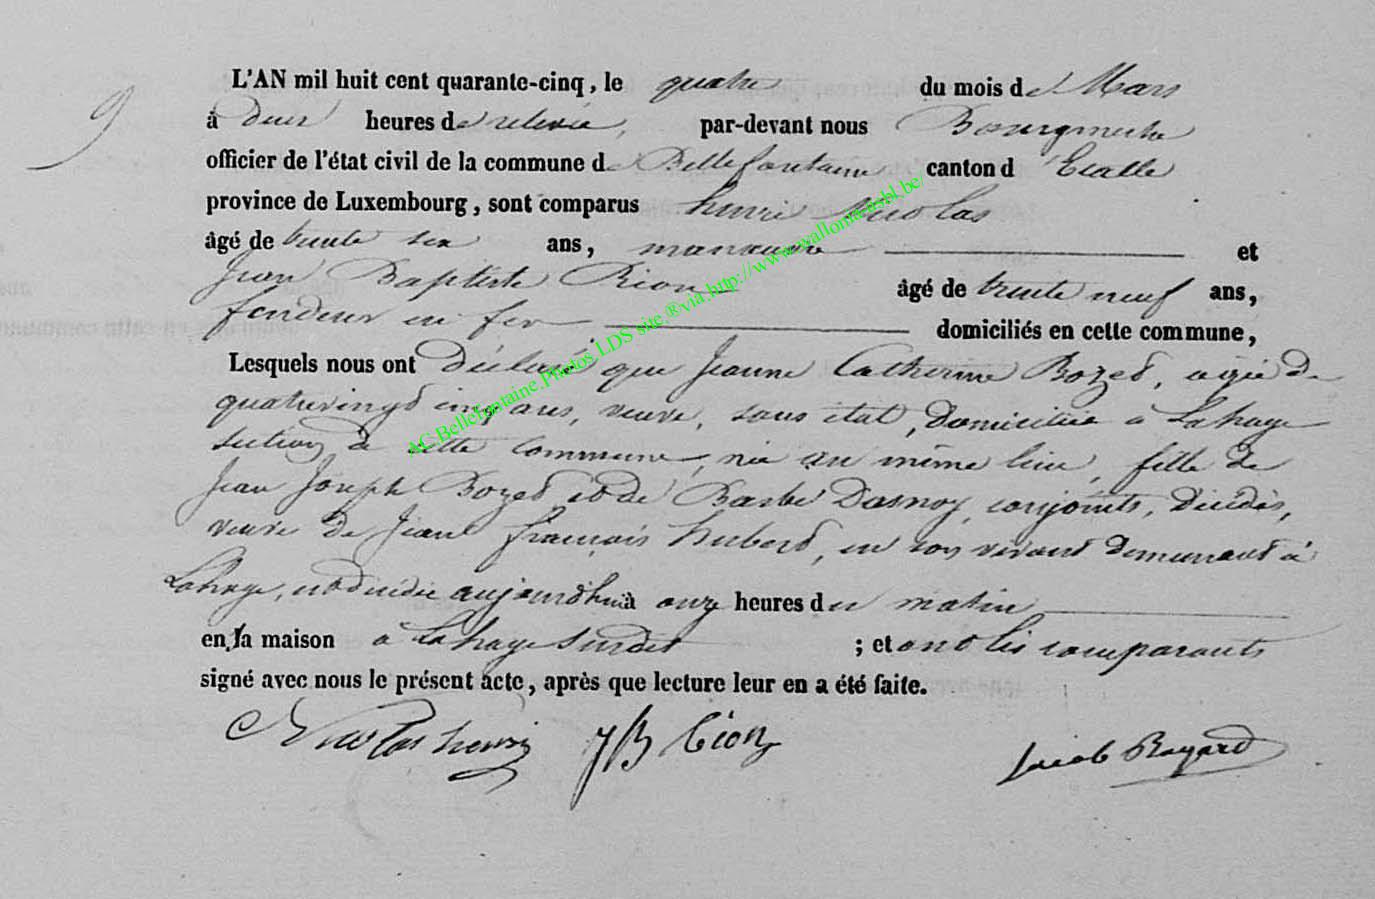 9
L'AN mil huit cent quarante-cinq, le quatre du mois de Mars
à deux heures de relevée, par-devant nous Bourgmestre
officier de l'état civil de la commune de Bellefontaine canton d'Etalle
province de Luxembourg, sont comparus henri Nicolas
âgé de trente six ans, manœuvre et
Jean Baptiste Rion âgé de trente neuf ans,
fondeur en fer domiciliés en cette commune,
Lesquels nous ont déclaré que Jeanne Catherine Bozet, agée de
quatrevingt cinq ans, veuve, sans état, domiciliée à Lahage
section de cette commune, née au même lieu, fille de
Jean Joseph Bozet et de Barbe Dasnoy, conjoints, décédés,
veuve de Jean françois hubert, en son vivant demeurant à
Lahage, est décédée aujourd'hui à onze heures du matin
en sa maison à Lahage susdit ; et ont les comparants
signé avec nous le présent acte, après que lecture leur en a été faite.
Nicolas henri JB Rion Jacob Bayard
AC.Bellefontaine.Photos.LDS site.®via.http://www.wallonia.asbl.be/